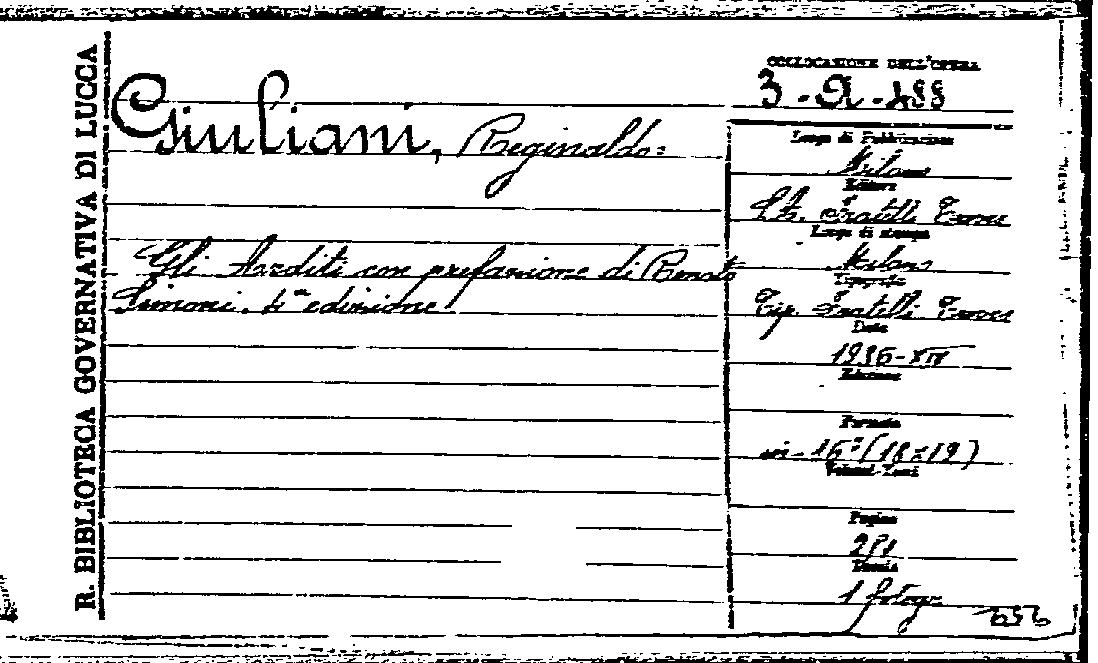 R. BIBLIOTECA GOVERNATIVA DI LUCCA
COLLOCAZIONE DELL'OPERA
Giuliani, Reginaldo:
Luogo di Pubblicazione
Milano
Editore
Fratelli Treves
Luogo di stampa
Milano
Tipografia
Tip. Fratelli Treves
Data
1936-XIV
Edizione
Gli Arditi con prefazione di Renato
Simoni. 4ª edizione
Formato
in-16º (18x19)
Volumi-Tomi
Pagine
281
1 fotogr.